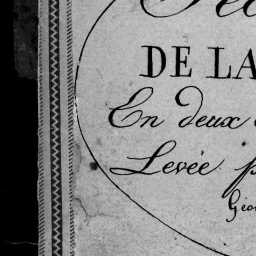 DE LA
En deux
Levée
Géo